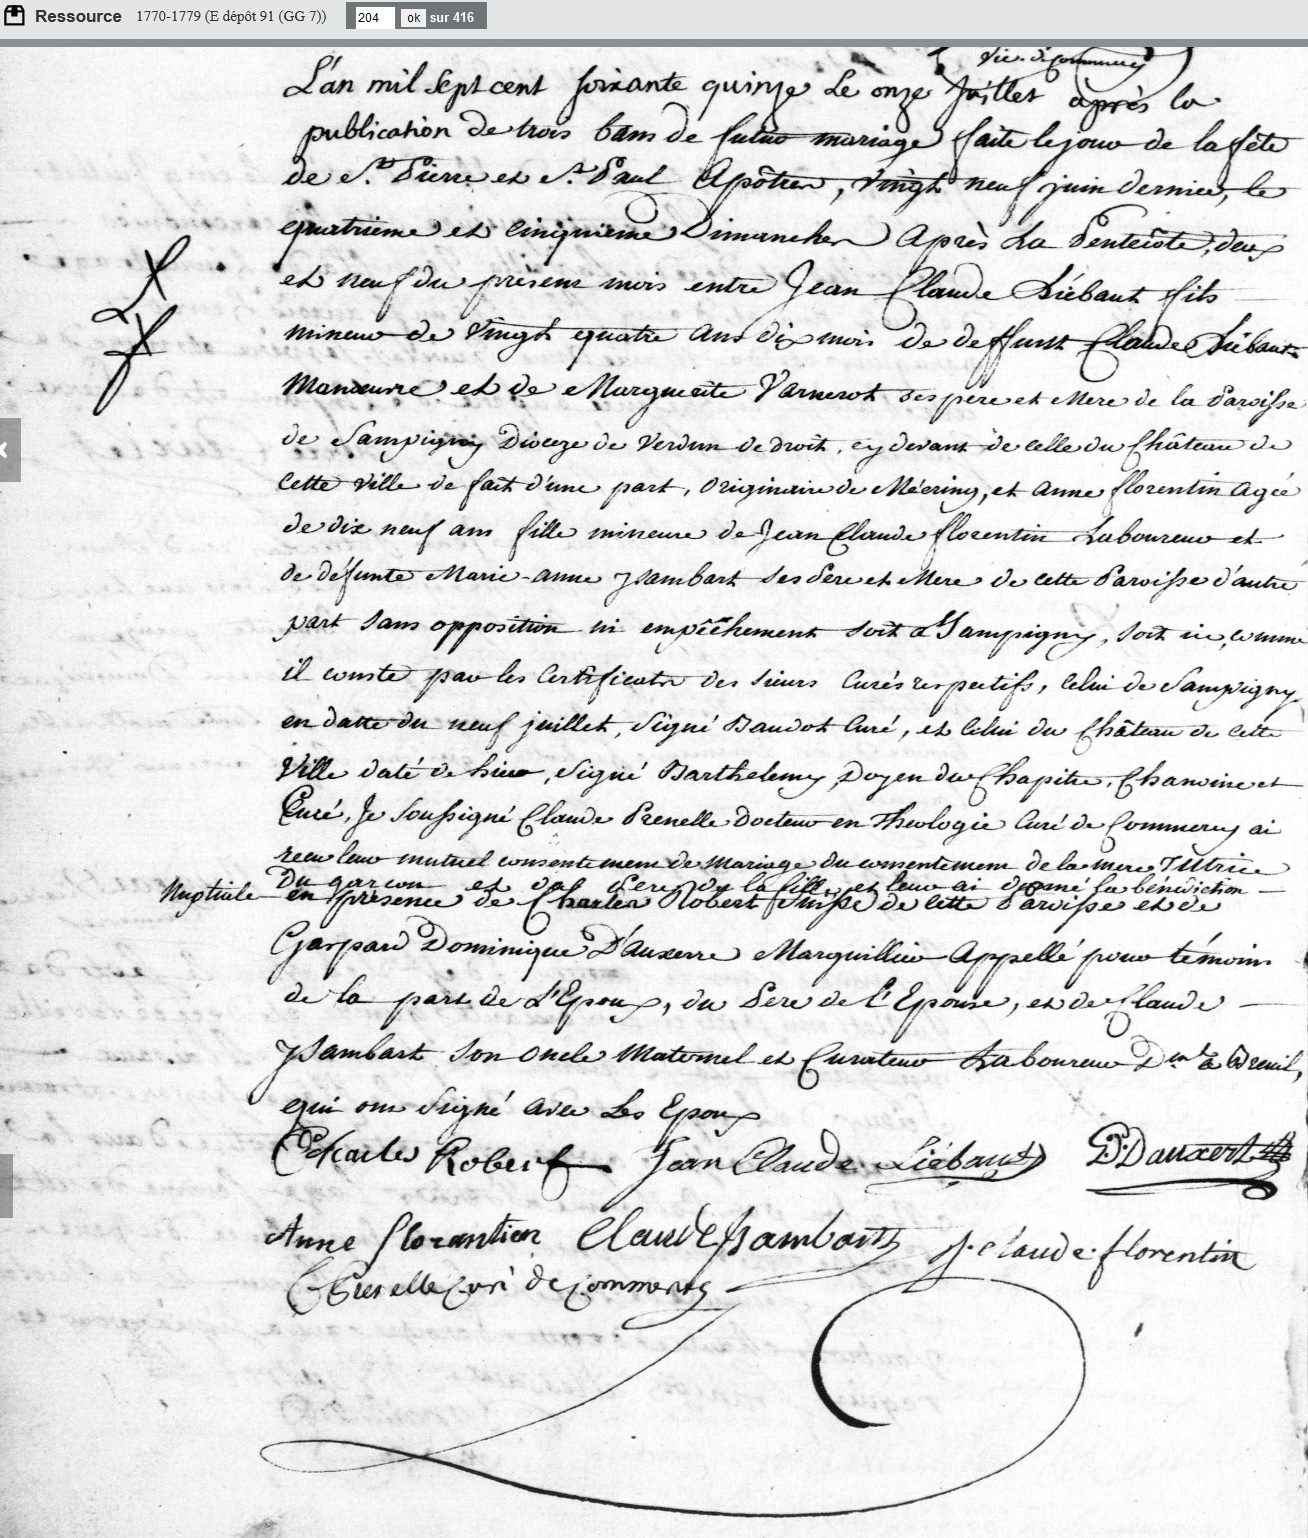 Ressource 1770-1779 (E dépôt 91 (GG 7)) 204 ok sur 416
vic. de Commercy
L'an mil sept cent soixante quinze le onze Juillet après la
publication de trois bans de futur mariage faite le jour de la fête
de St. Pierre et St. Paul Apôtres, vingt neuf juin dernier, le
quatrieme et cinquieme Dimanches Après La Pentecôte, deux
et neuf du présent mois entre Jean Claude Liébaut fils
mineur de vingt quatre ans dix mois de deffunt Claude Liébaut
Manœuvre et de Marguerite Varnerot ses pere et Mere de la Paroisse
de Sampigny Dioceze de Verdun de droit, cy devant de celle du Château de
cette Ville de fait d'une part, Originaire de Mécring, et Anne florentin Agée
de dix neuf ans fille mineure de Jean Claude florentin Laboureur et
de défunte Marie-anne ysambart ses Pere et Mere de cette Paroisse d'autre
part Sans opposition ni empêchement soit à Sampigny, soit ici, comme
il conste par les Certificats des sieurs Curés respectifs, Celui de Sampigny
en datte du neuf juillet, Signé Baudot Curé, et Celui du Château de cette
Ville daté de hier, Signé Barthelemy Doyen du Chapitre, Chanoine et
Curé, Je soussigné Claude Prenelle Docteur en Theologie Curé de Commercy ai
recu leur mutuel consentement de Mariage du consentement de la mere Tutrice
Du garcon et du Pere de la fille, et leur ai donné la bénédiction
Nuptiale en présence de Charles Robert Suisse de cette Paroisse et de
Gaspard Dominique D'Auxerre Marguillier Appellé pour témoins
de la part de L'Epoux, du Pere de l'Epouse, et de Claude
ysambart son Oncle Maternel et Curateur Laboureur Dmt à Breuil,
qui ont Signé avec Les Epoux
Charles Robert Jean Claude Liébaut D. Dauxert
Anne florantien Claude Isambart J. claude florentin
C Prenelle Curé de Commercy